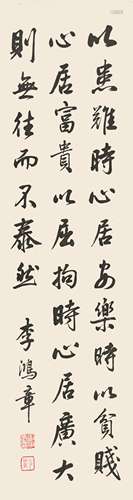 以患難時心居安樂時以貧賤
心居富貴以屈拘時心居廣大
則無往而不泰然
李鴻章